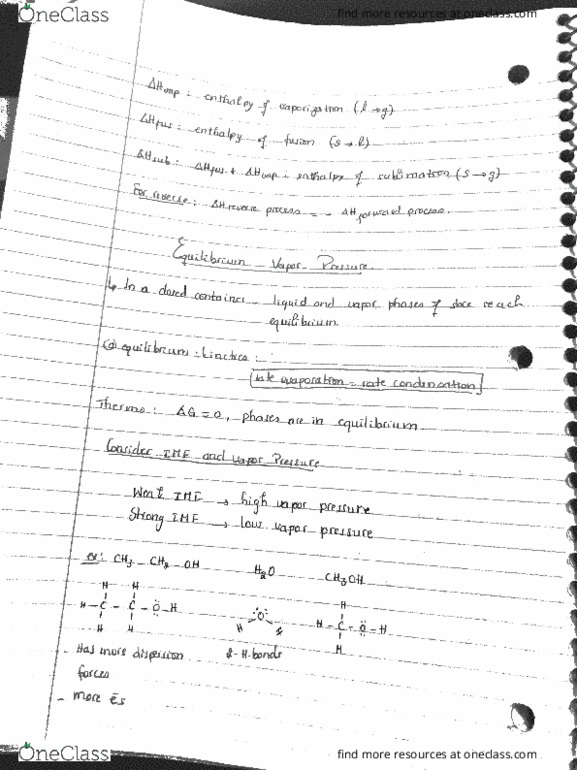 OneClass
find more resources at oneclass.com
ΔHvap : enthalpy of vaporization (l → g)
ΔHfus : enthalpy of fusion (s → l)
ΔHsub : ΔHfus + ΔHvap : enthalpy of sublimation (s → g)
For reverse : ΔH reverse process = - ΔH forward process.
Equilibrium Vapor Pressure
↳ In a closed container liquid and vapor phases of reach
equilibrium
@ equilibrium : kinetics :
rate evaporation = rate condensation
Thermo : ΔG = 0, phases are in equilibrium
Consider IMF and Vapor Pressure
Weak IMF → high vapor pressure
Strong IMF → low vapor pressure
ex: CH3 - CH2 - OH H2O CH3OH
H H H
H - C - C - O - H O H - C - O - H
H H H H H
- Has more dispersion 2-H-bonds
forces
- more ēs
OneClass
find more resources at oneclass.com